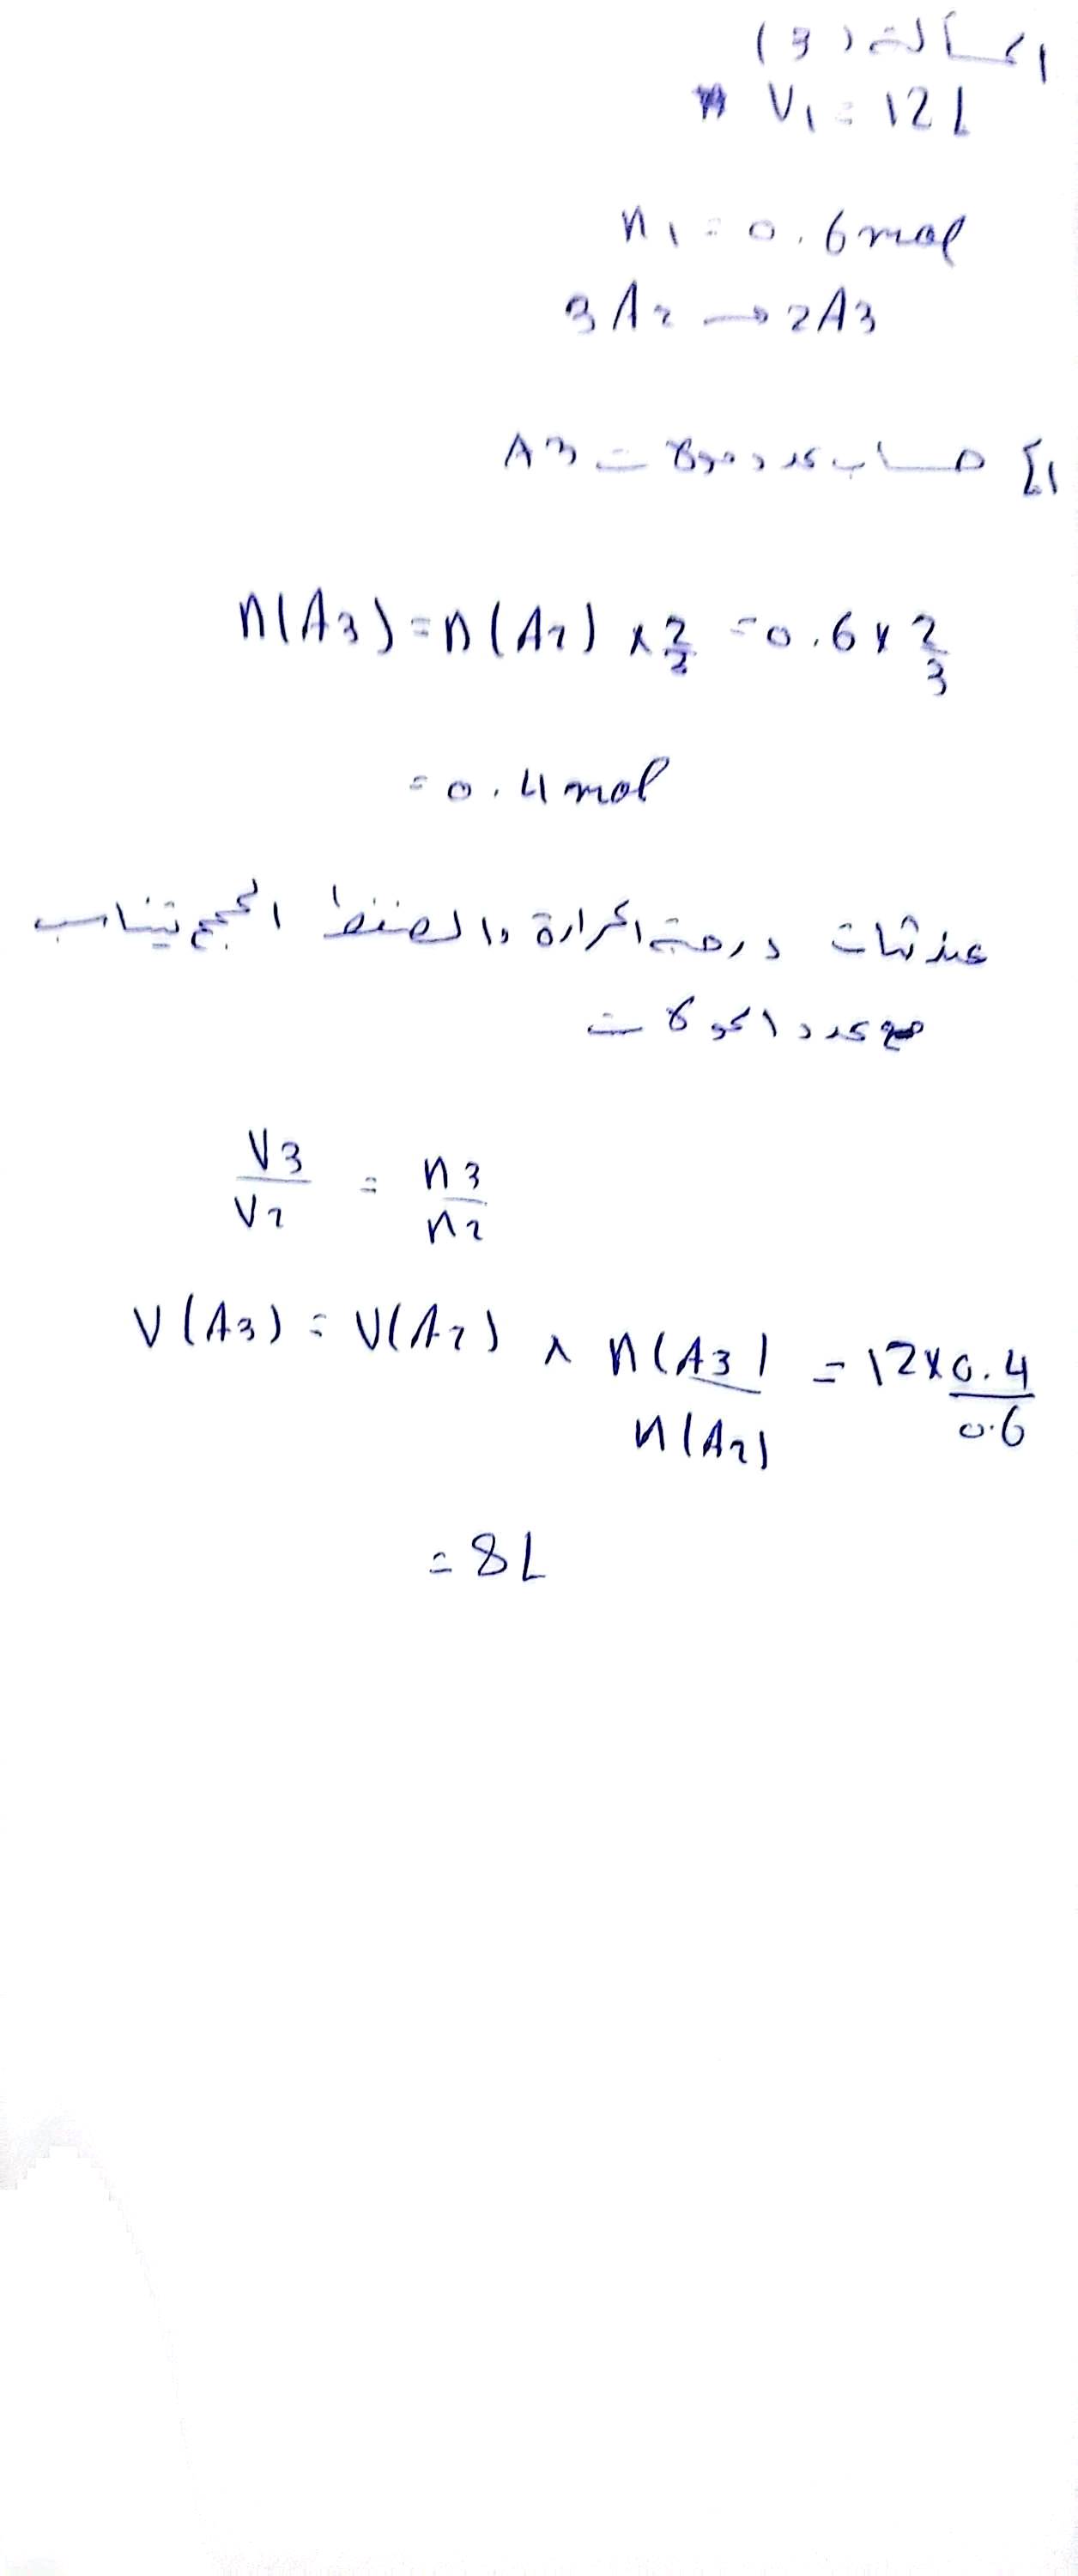 المسألة (3)
V1 = 12 L
n1 = 0.6 mol
3A2 → 2A3
1] حساب عدد مولات A3
n(A3) = n(A2) × 2/3 = 0.6 × 2/3
= 0.4 mol
عند ثبات درجة الحرارة والضغط الحجم يتناسب
مع عدد المولات
V3/V2 = n3/n2
V(A3) = V(A2) × n(A3)/n(A2) = 12 × 0.4/0.6
= 8L